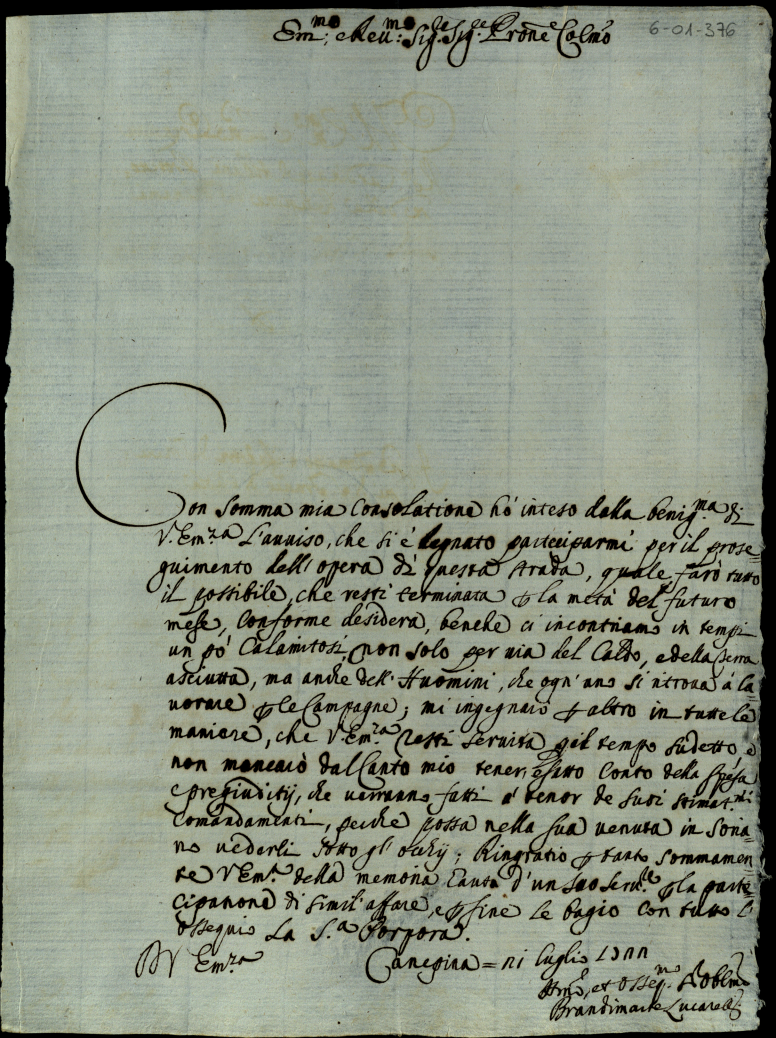 6-01-376
Em:mo e Reu:mo Sig.re Sig.re Prone Colmo
Con somma mia Consolatione hò inteso dalla benig.ma di
V. Em.za L'auuiso, che si è degnato parteciparmi per il prose=
guimento dell'opera di questa strada, quale farò tutto
il possibile, che resti terminata p la metà del futuro
mese, Conforme desidera, benche ci incontriamo in tempi
un pò Calamitosi, non solo per uia del Caldo, e della Terra
asciutta, ma anche dell'Huomini, che ogn'uno si ritroua à la=
uorare p le Campagne; mi ingegnaiò p altro in tutte le
maniere, che V. Em.za resti seruita pel tempo sudetto e
non mancaiò dal Canto mio tener esatto Conto della spesa
e pregiuditij, che uerranno fatti à tenor de suoi stimat.mi
Comandamenti, perche possa nella sua uenuta in Soria=
no uederli sotto gl'occhij; Ringratio p tanto sommamen=
te V Em.za della memoria tanta d'un suo Seru.re p la parte=
cipatione di simil'affare, e p fine le bagio con tutto l'
ossequio La S.a Porpora.
D V Em.za
Canepina = Luglio
Hm.o, et Osseq.mo Oblmo
Brandimarte Lucarelli